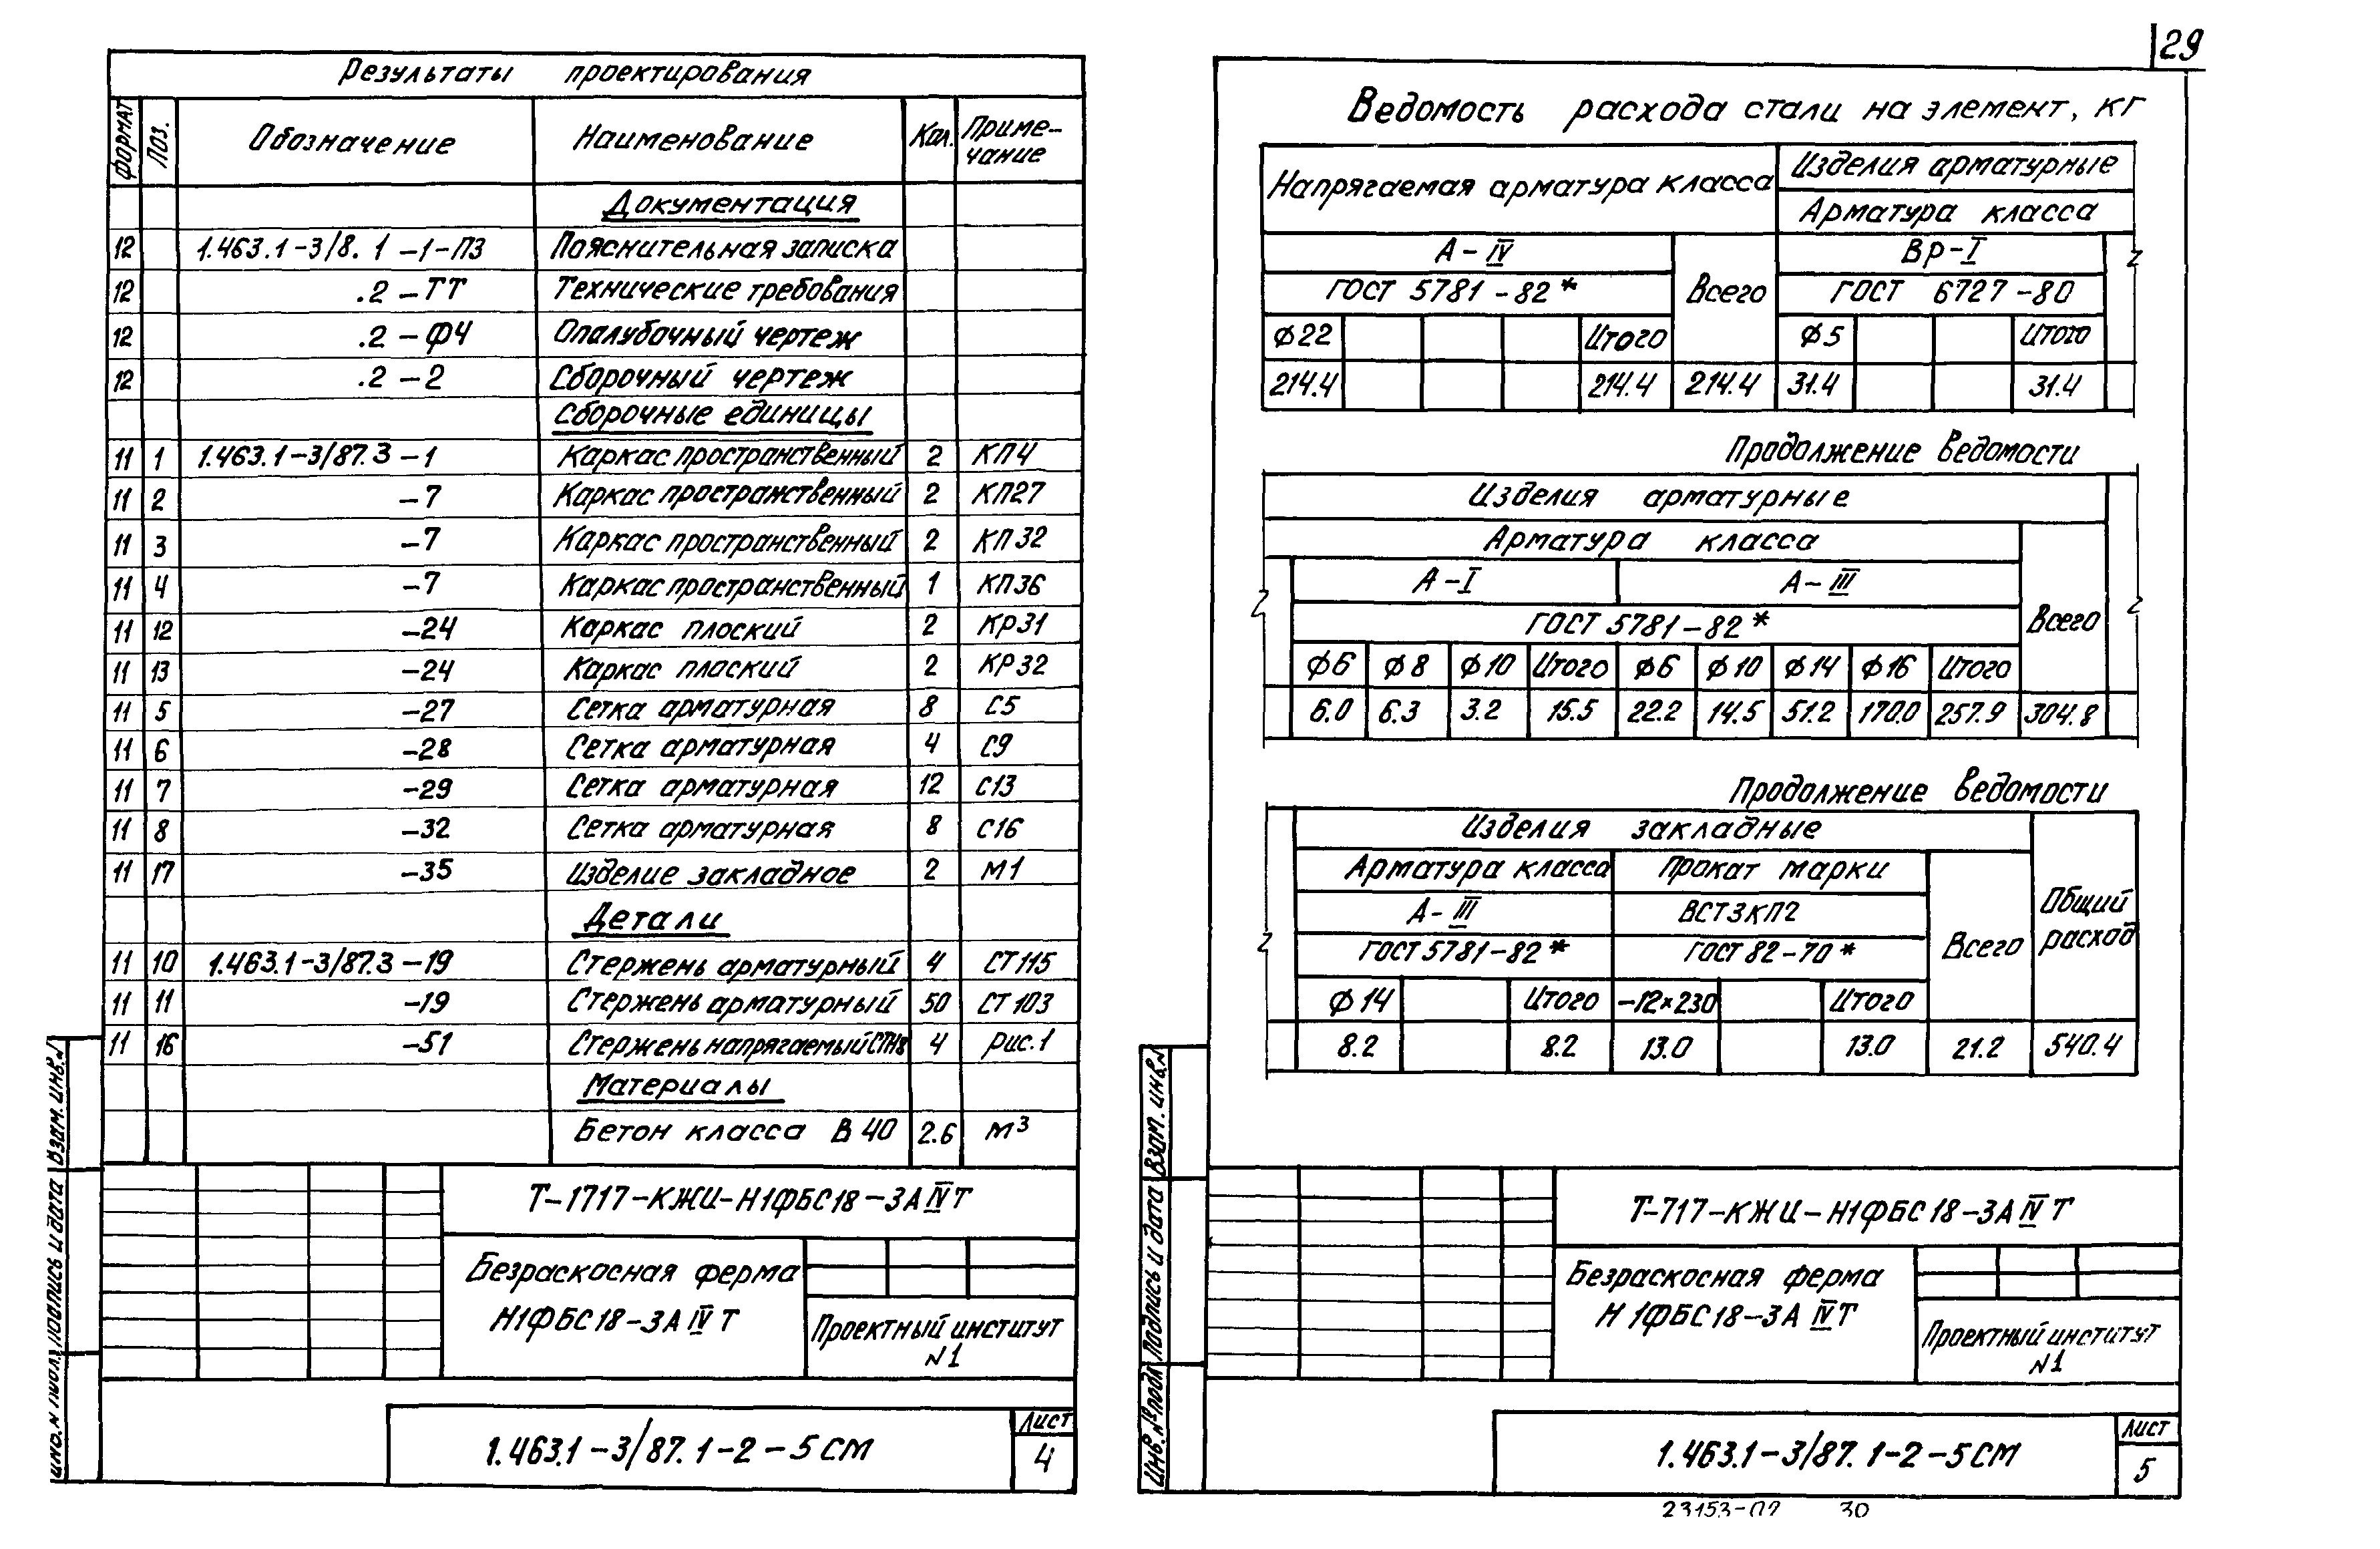 Результаты проектирования
Формат Поз. Обозначение Наименование Кол. Приме-
чание
Документация
12 1.463.1-3/8. 1 -1-ПЗ Пояснительная записка
12 .2-ТТ Технические требования
12 .2-ФЧ Опалубочный чертеж
12 .2-2 Сборочный чертеж
Сборочные единицы
11 1 1.463.1-3/87.3 -1 Каркас пространственный 2 КП4
11 2 -7 Каркас пространственный 2 КП27
11 3 -7 Каркас пространственный 2 КП32
11 4 -7 Каркас пространственный 1 КП36
11 12 -24 Каркас плоский 2 КР31
11 13 -24 Каркас плоский 2 КР32
11 5 -27 Сетка арматурная 8 С5
11 6 -28 Сетка арматурная 4 С9
11 7 -29 Сетка арматурная 12 С13
11 8 -32 Сетка арматурная 8 С16
11 17 -35 Изделие закладное 2 М1
Детали
11 10 1.463.1-3/87.3 -19 Стержень арматурный 4 СТ115
11 11 -19 Стержень арматурный 50 СТ103
11 16 -51 Стержень напрягаемый СТН8 4 Рис.1
Материалы
Бетон класса В40 2.6 м³
Т-1717-КЖИ-Н1ФБС18-3АIVТ
Безраскосная ферма
Н1ФБС18-3АIVТ
Проектный институт
N1
1.463.1-3/87.1-2-5СМ
Лист
4
Инв.N подл. Подпись и дата Взам.инв.N
29
Ведомость расхода стали на элемент, кг
Напрягаемая арматура класса Изделия арматурные
Арматура класса
А-IV Всего Вр-I
ГОСТ 5781-82* ГОСТ 6727-80
Ф22 Итого Ф5 Итого
214.4 214.4 214.4 31.4 31.4
Продолжение ведомости
Изделия арматурные
Арматура класса Всего
А-I А-III
ГОСТ 5781-82*
Ф6 Ф8 Ф10 Итого Ф6 Ф10 Ф14 Ф16 Итого
6.0 6.3 3.2 15.5 22.2 14.5 51.2 170.0 257.9 304.8
Продолжение ведомости
Изделия закладные Общий
расход
Арматура класса Прокат марки Всего
А-III ВСТ3КП2
ГОСТ 5781-82* ГОСТ 82-70*
Ф14 Итого -12×230 Итого
8.2 8.2 13.0 13.0 21.2 540.4
Т-717-КЖИ-Н1ФБС18-3АIVТ
Безраскосная ферма
Н1ФБС18-3АIVТ
Проектный институт
N1
1.463.1-3/87.1-2-5СМ
Лист
5
Инв.№ подл. Подпись и дата Взам. инв.N
23153-02 30